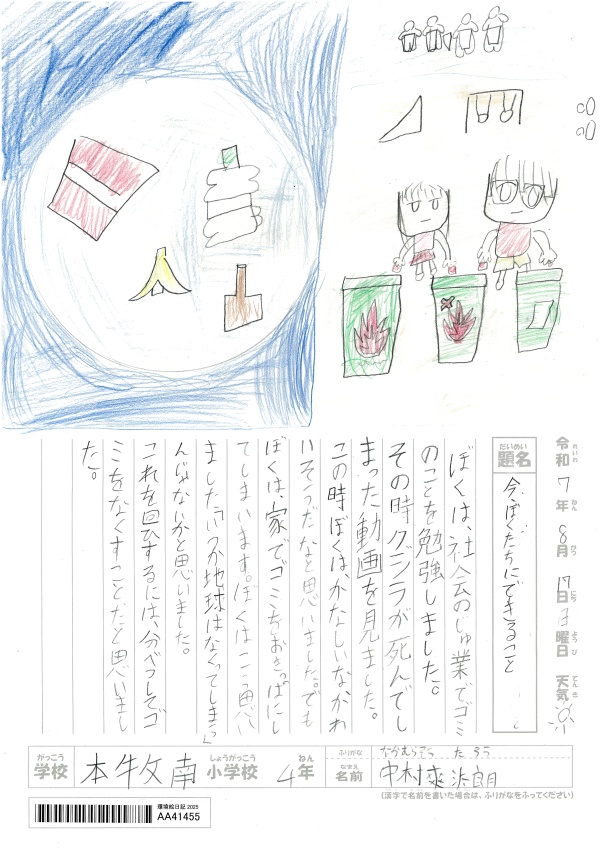 令和7年8月17日日曜日 天気
れいわ ねん がつ にち ようび てんき
だいめい
題名 今、ぼくたちにできること
ぼくは、社会のじゅ業でゴミ
のことを勉強しました。
その時クジラが死んでし
まった動画を見ました。
この時ぼくは、かなしいなかわ
いそうだなと思いました。でも
ぼくは、家でゴミをおきっぱにし
てしまいます。ぼくはこう思い
ました「いつか地球はなくってしまう」
んじゃないかと思いました。
これを回ひするには、分べつしてゴ
ミをなくすことだと思いまし
た。
がっこう しょうがっこう ねん ふりがな なかむらそうたろう
学校 本牧南 小学校 4年 なまえ 名前 中村爽汰朗
(漢字で名前を書いた場合は、ふりがなをふってください)
環境絵日記 2025
AA41455